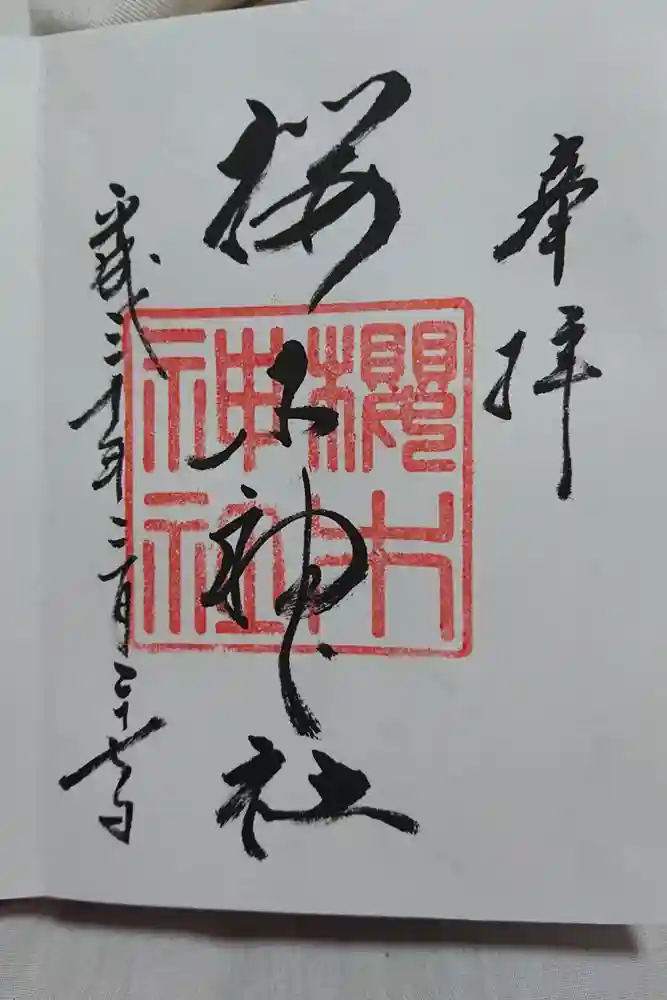 奉拝
桜木神社
櫻木
神社
平成三十年三月二十七日